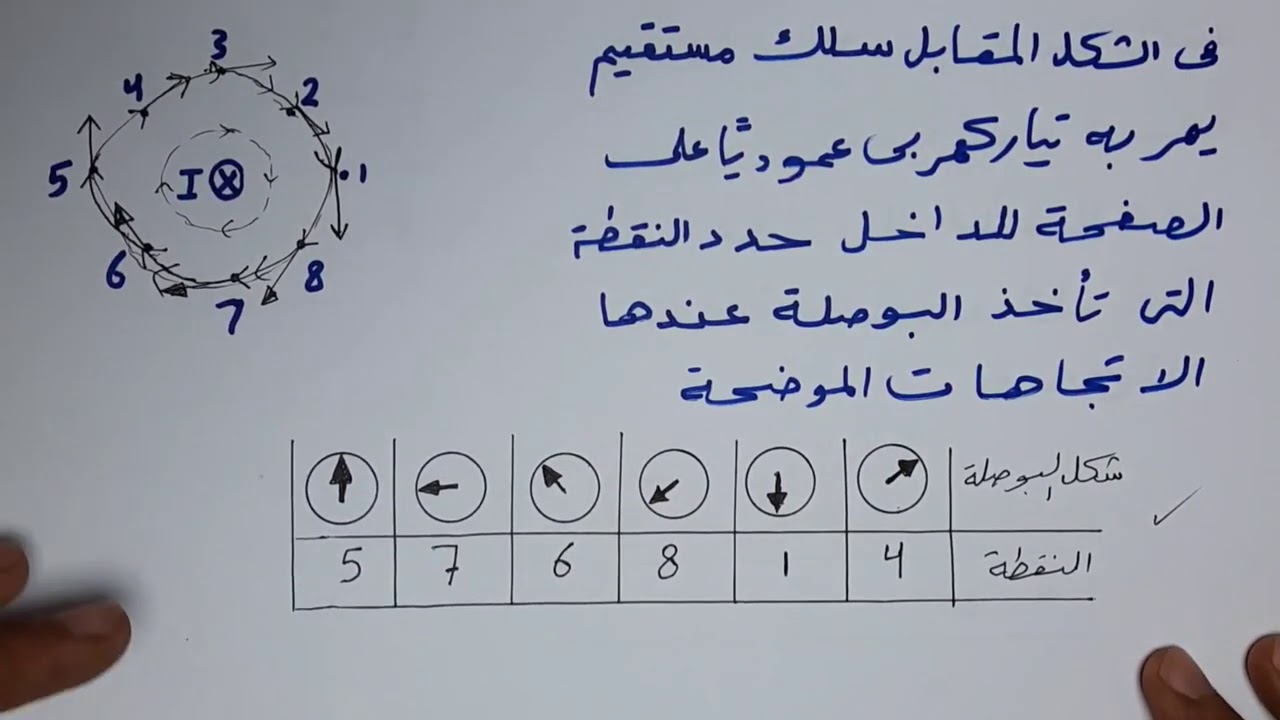 فى الشكل المقابل سلك مستقيم
يمر به تيار كهربى عموديًا على
الصفحة للداخل حدد النقطة
التى تأخذ البوصلة عندها
الاتجاهات الموضحة
3
4
2
5
I
1
6
8
7
شكل البوصلة
النقطة 4 1 8 6 7 5